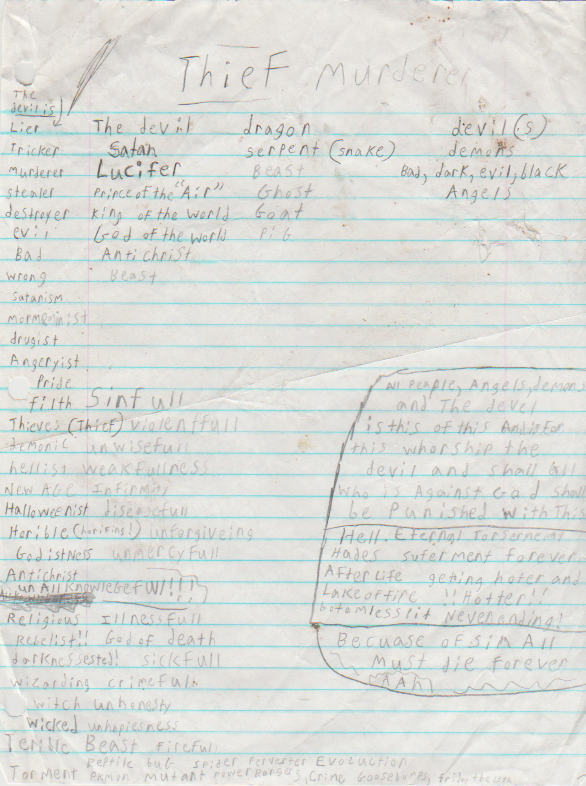 Thief Murderer
The
devil is
Lier The devil dragon devil(s)
Tricker Satan serpent (snake) demons
murderer Lucifer Beast Bad, dark, evil, black
stealer Prince of the "Air" Ghost Angels
destroyer King of the World Goat
evil God of the world Pig
Bad Antichrist
wrong Beast
satanism
drugist
Angeryist
Pride
filth Sinfull
Thieves (Thief) violentfull
demonic unwisefull
hellist weakfullness
New AGE Infirmity
Halloweenist
Horible (horifing!) unforgiveing
Godistness unmercyfull
Antichrist
un All Knowlegefull!!!
Religious Illnessfull
Rebelist!! God of death
darknessested! sickfull
wizarding crimefull
witch unhonesty
wicked unhopiesness
Terrible Beast Firefull
Reptile bug spider Perverter Evoluction
Torment mutant Power Rangers, Crime Goosebumps,
All People, Angels, demons
and The devel
is this of this And is For
this whorship the
devil and shall All
who is Against God shall
be Punished with This
Hell. Eternal
Hades suferment forever
After Life geting hoter and
Lake of fire !! Hotter!!
botomless Pit Never ending!
Becuase of sin All
Must die forever
AAH